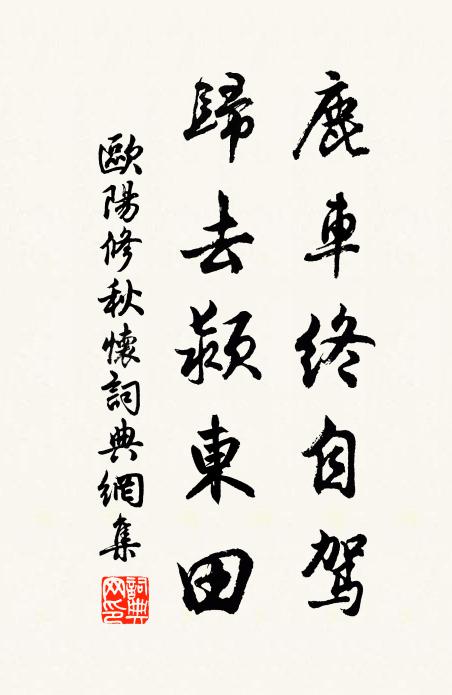 鹿車終自駕
歸去潁東田
歐陽修秋懷詞典網集
詞典网印